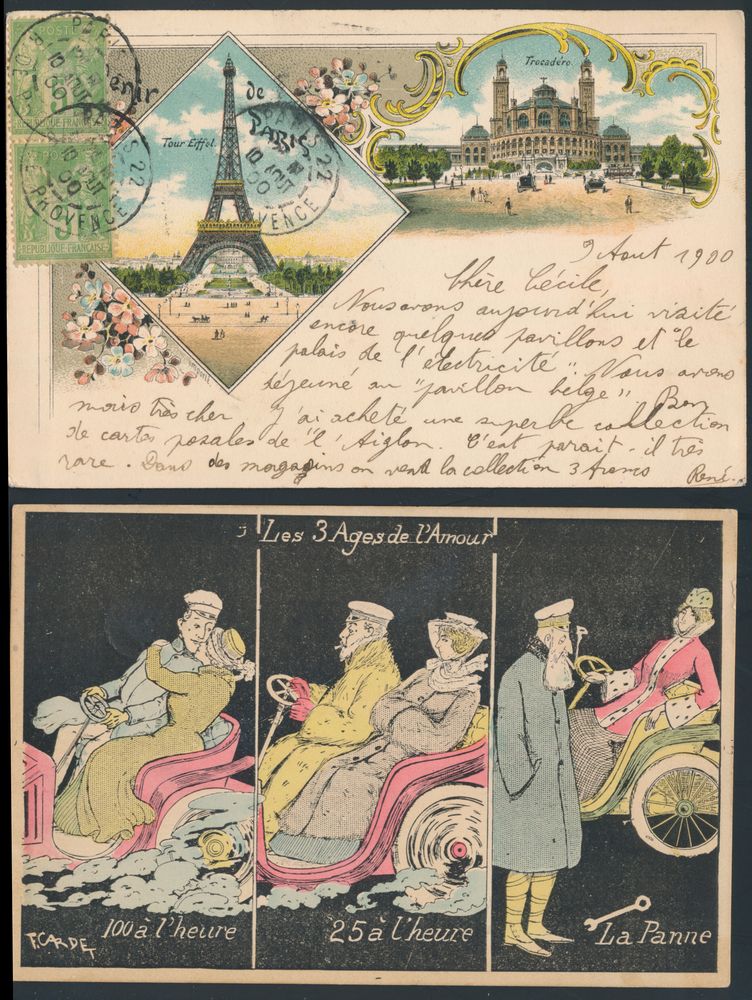 Souvenir de Paris
POSTE
5
REPUBLIQUE FRANÇAISE
PARIS 22
R. DE PROVENCE
10 AOUT 00
Tour Eiffel.
Trocadéro.
9 Aout 1900
Chère Cécile,
Nous avons aujourd'hui vizité
encore quelques pavillons et "le
palais de l'électricité". Nous avons
déjeuné au "pavillon belge". Bon
mois très cher J'ai acheté une superbe collection
de cartes pozales de "l'Aiglon. C'est parait-il très
rare. Dans des magazins on vend la collection 3 francs
René.
Les 3 Ages de l'Amour
100 à l'heure
25 à l'heure
La Panne
F. CARDET